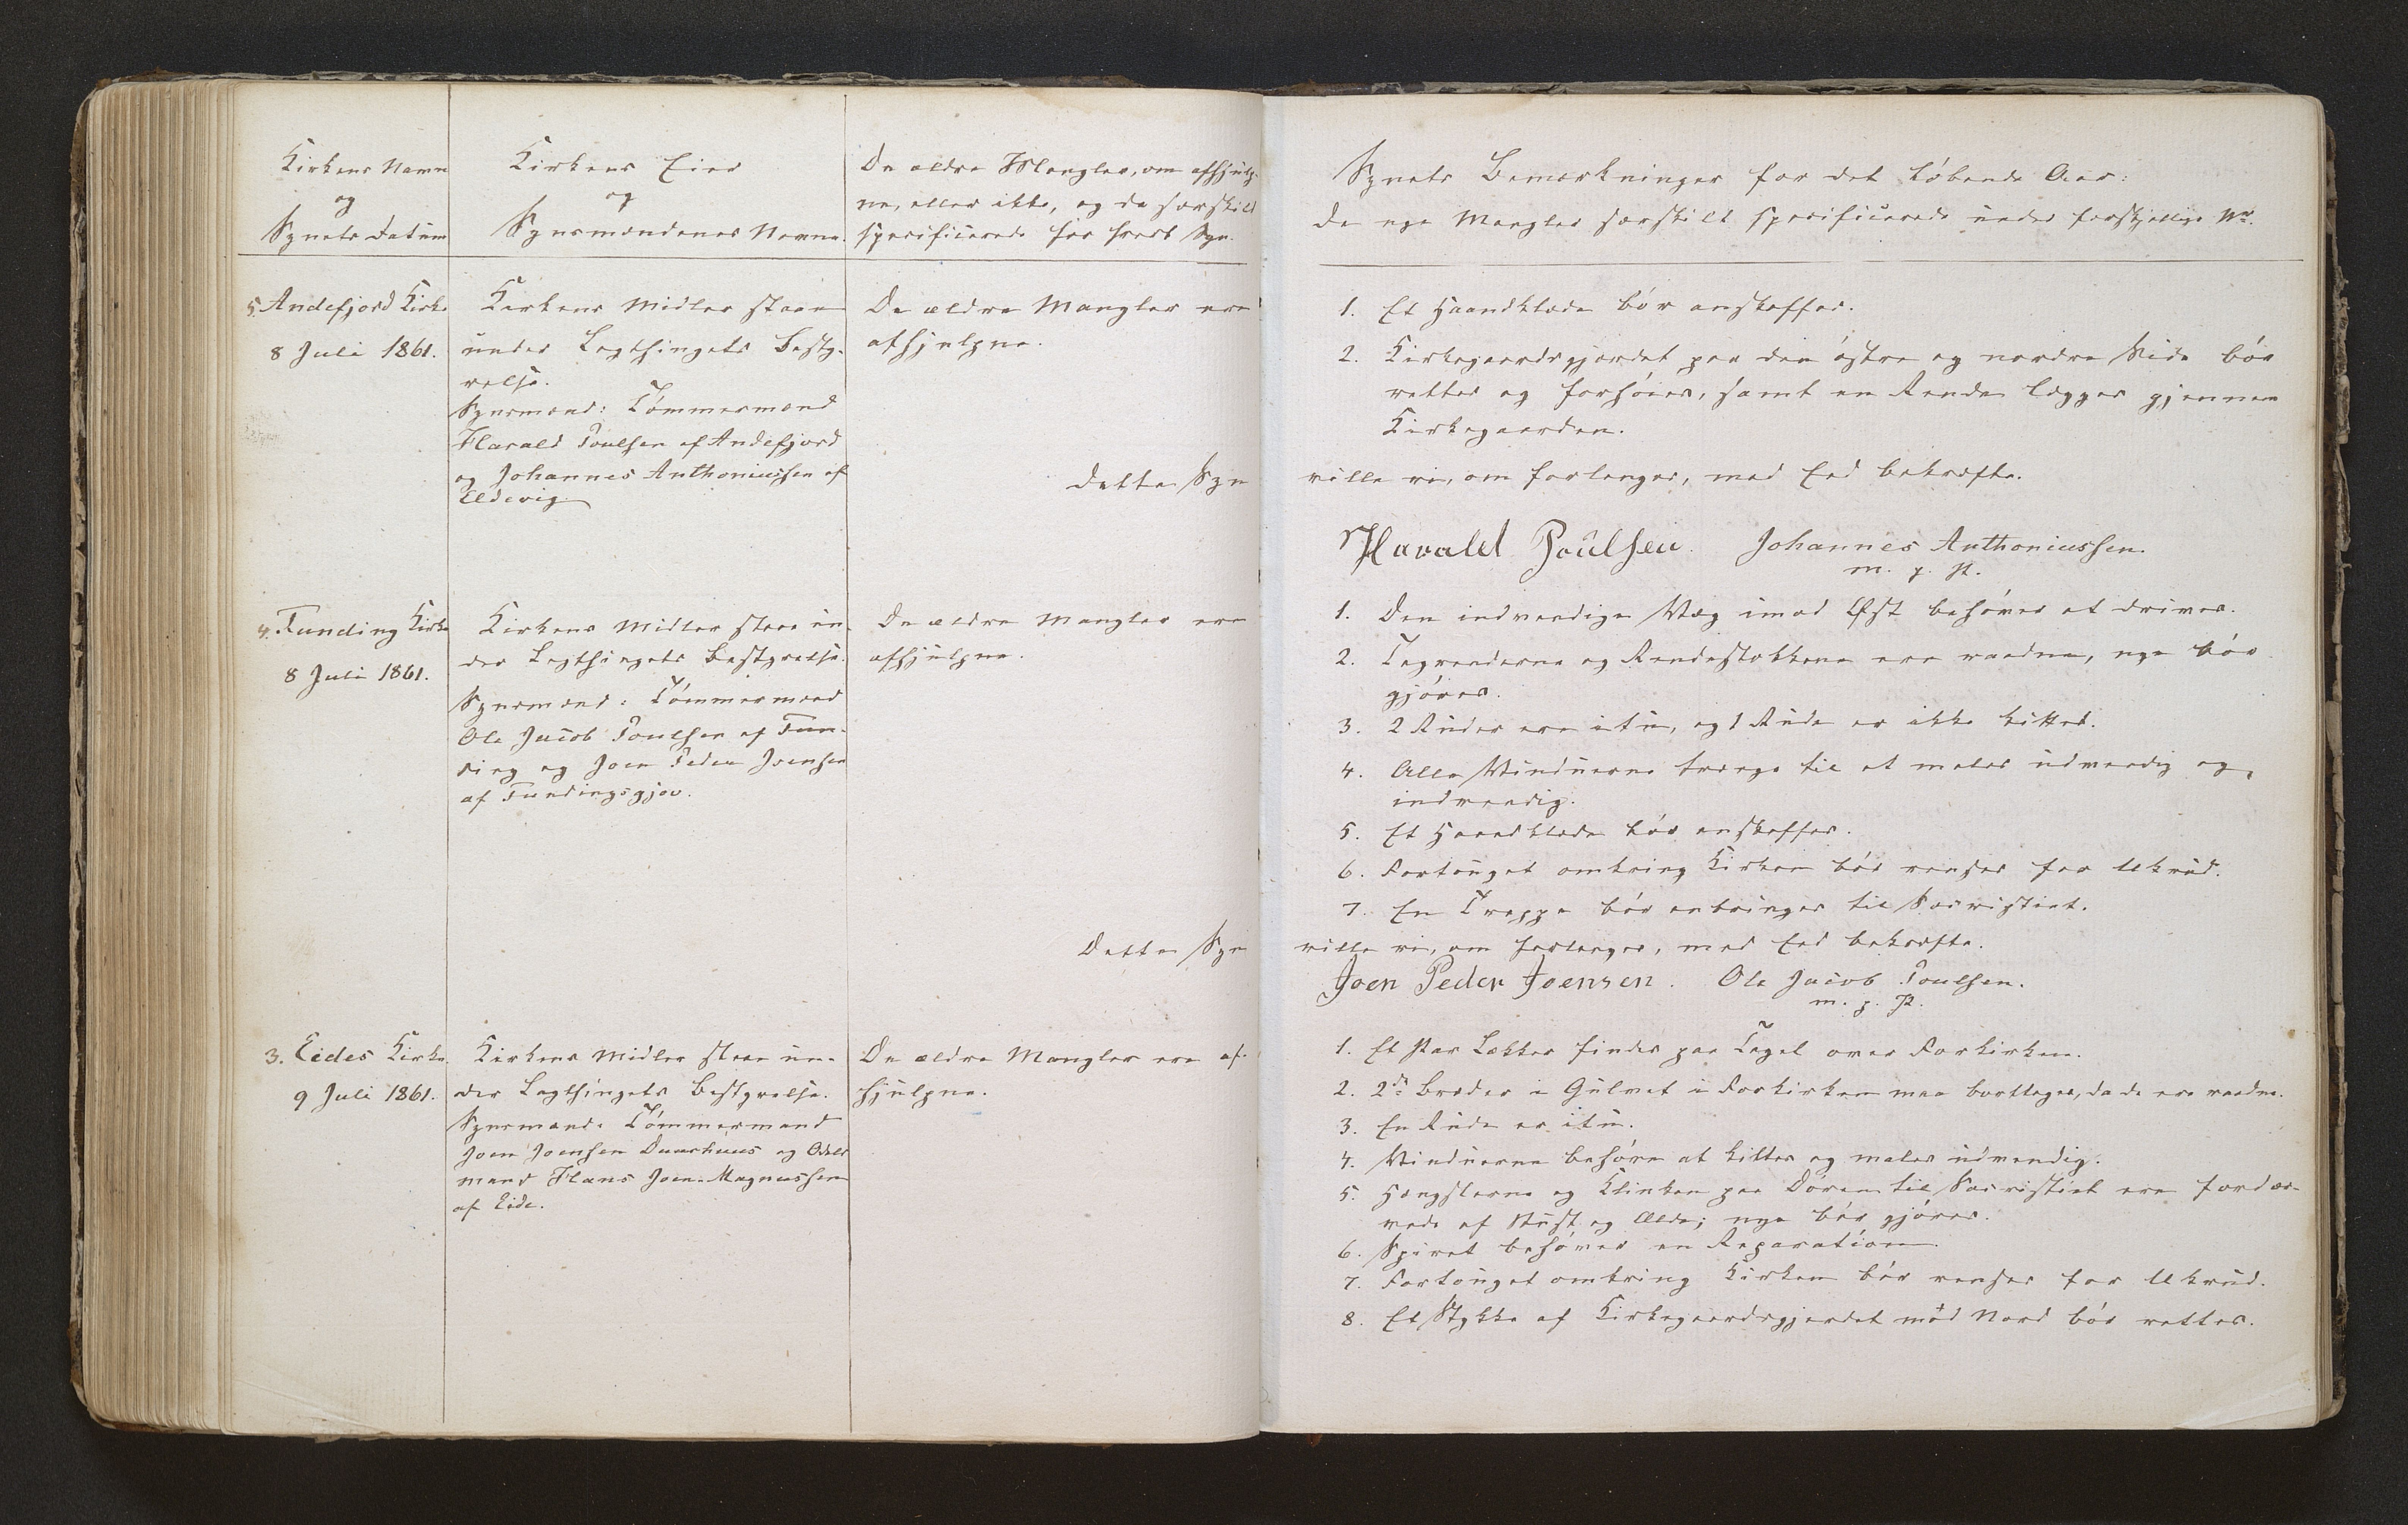 Kirkens Navn
og
Synets Datum
Kirkens Eier
og
Synsmændenes Navne.
De ældre Mangler, om afhjulp-
ne, eller ikke, og da særskilt
specificerede for hvert Syn.
5. Andefjord Kirke
8 Juli 1861.
Kirkens Midler staae
under Lagthingets Besty-
relse.
Synsmænd: Tömmermænd
Harald Poulsen af Andefjord
og Johannes Anthoniussen af
Eldevig
De ældre Mangler ere
afhjulpne.
Dette Syn
4. Funding Kirke
8 Juli 1861.
Kirkens Midler staae un-
der Lagthingets Bestyrelse.
Synsmænd: Tömmermænd
Ole Jacob Poulsen af Fun-
ding og Joen Peder Joensen
af Fundingsgjov.
De ældre Mangler ere
afhjulpne.
Dette Syn
3. Eides Kirke
9 Juli 1861.
Kirkens Midler staae un-
der Lagthingets Bestyrelse.
Synsmænd: Tömmermand
Joen Joensen Duurhuus og Odels
mand Hans Joen Magnussen
af Eide.
De ældre Mangler ere af-
hjulpne.
Synets Bemærkninger for det löbende Aar:
De nye Mangler særskilt specificerede under forskjellige No.
1. Et Haandklæde bör anskaffes.
2. Kirkegaardsgjærdet paa den östre og nordre Side bör
rettes og forhöies, samt en Rende lægges gjennem
Kirkegaarden.
ville vi, om forlanges, med Eed bekræfte.
Harald Poulsen. Johannes Anthoniussen.
m. p. P.
1. Den indvendige Væg imod Øst behöver at drives.
2. Tagrenderne og Rendestokkene ere raadne, nye bör
gjöres.
3. 2 Ruder ere itu, og 1 Rude er ikke kittet.
4. Alle Vinduerne trænge til at males udvendig og
indvendig.
5. Et Haandklæde bör anskaffes.
6. Fortouget omkring Kirken bör renses for Ukrud.
7. En Trappe bör anbringes til Sacristiet.
ville vi, om forlanges, med Eed bekræfte.
Joen Peder Joensen. Ole Jacob Poulsen.
m. p. P.
1. Et Par Lækker findes paa Taget over Forkirken.
2. 2de Bræder i Gulvet i Forkirken maa borttages, da de ere raadne.
3. En Rude er itu.
4. Vinduerne behöve at kittes og males udvendig.
5. Hængslerne og Klinken paa Dören til Sacristiet ere fordær-
vede af Rust og Ælde; nye bör gjöres.
6. Spiret behöver en Reparation.
7. Fortouget omkring Kirken bör renses for Ukrud.
8. Et Stykke af Kirkegaardsgjærdet mod Nord bör rettes.